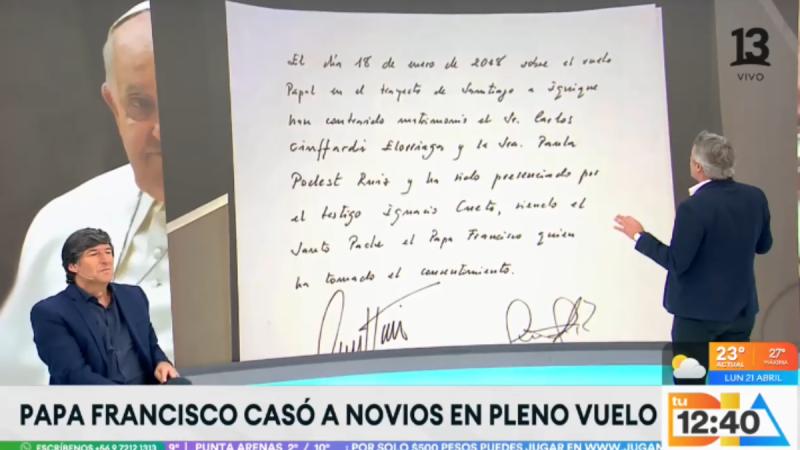 El día 18 de enero de 2018 sobre el vuelo
Papal en el trayecto de Santiago a Iquique
han contraido matrimonio el Sr. Carlos
Ciuffardi Elorriaga y la Sra. Paula
Podest Ruiz y ha sido presenciado por
el testigo Ignacio Cueto, siendo el
Santo Padre el Papa Francisco quien
ha tomado el consentimiento.
13
VIVO
23° ACTUAL 27° MÁXIMA
LUN 21 ABRIL
PAPA FRANCISCO CASÓ A NOVIOS EN PLENO VUELO
tu
DÍA
12:40
ESCRÍBENOS +56 9 7212 1313 9° PUNTA ARENAS 2° / 10° ¡POR SÓLO $500 PESOS PUEDES JUGAR EN WWW.JUGAN